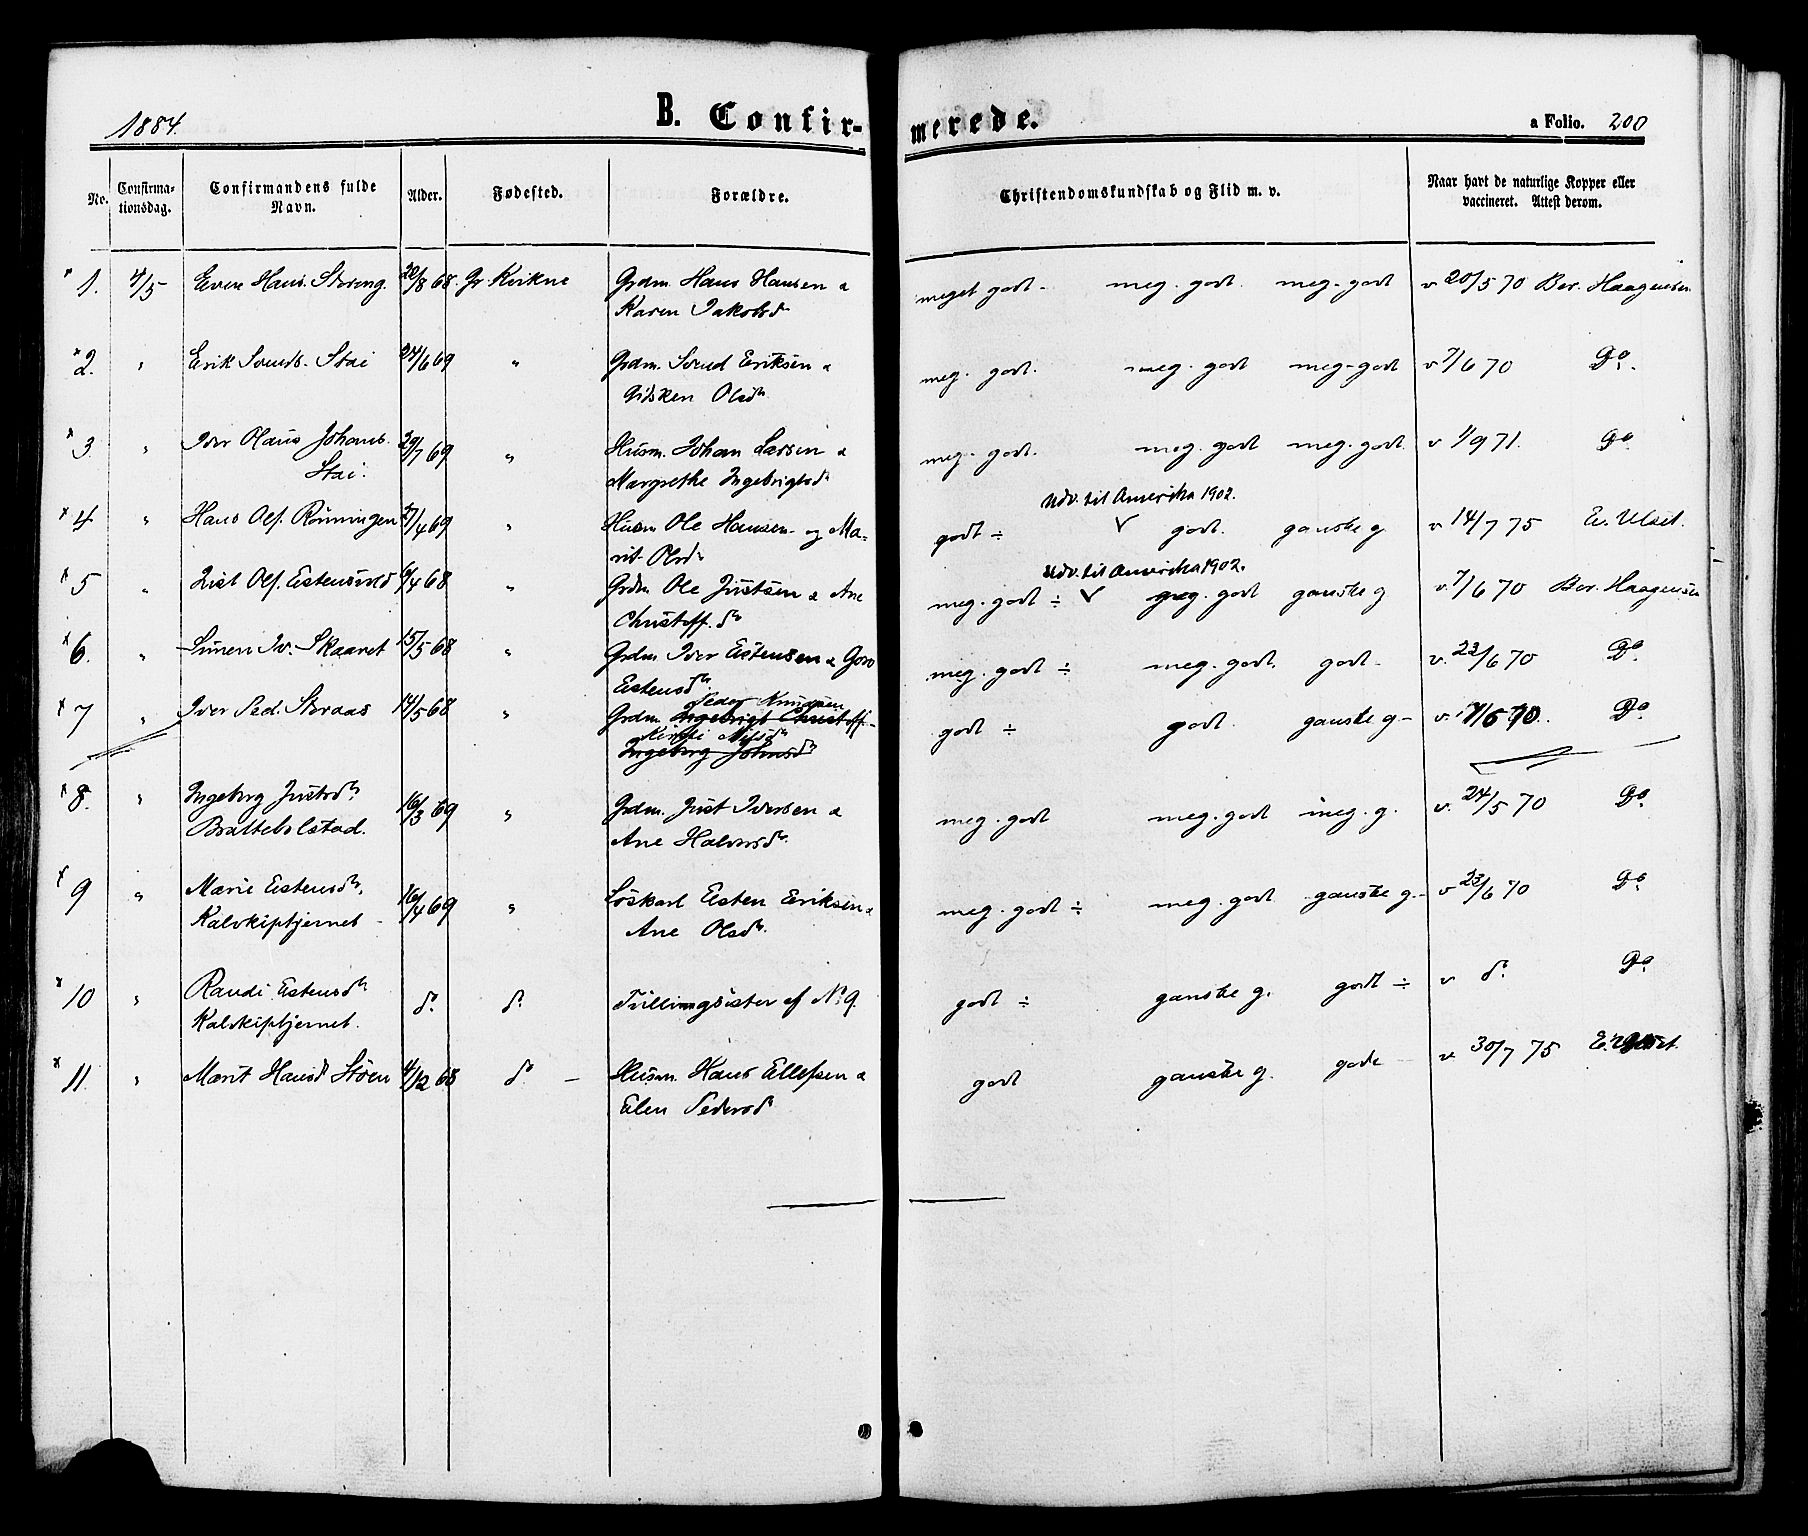 1884. B. Confir- merede. a Folio. 200
No. Confirma-tionsdag. Confirmandens fulde Navn. Alder. Fødested. Forældre. Christendomskundskab og Flid m. v. Naar havt de naturlige Kopper eller vaccineret. Attest derom.
1. 4/5 Even Hans. Støreng. 20/8 68. Gr. Kvikne Grdm. Hans Hansen & meget godt - meg. godt. meg. godt v 20/5 70 Ber. Haagensen
Karen Jakobsd
2. " Erik Svends. Stai 24/6 69 " Grdm. Svend Eriksen & meg. godt. meg. godt meg. godt v 7/6 70 Do.
Gidsken Olsdr.
3 " Iver Olaus Johans. 29/7 69 " Husm. Johan Larsen & meg. godt. meg. godt meg. godt. v 1/9 71. Do
Stai. Margrethe Ingebrigtsdr
Udv. til Amerika 1902.
4 " Hans Ols. Rønningen 21/4 69 " Husm Ole Hansen og Ma- godt ÷ ✓ godt. ganske g v 14/7 75 E. Ulset.
rit Olsdr
Udv. til Amerika 1902.
5 " Ols. Estensvld 68 " Grdm. Ole Justsen & Ane meg. godt ÷ ✓ meg. godt ganske g v. 7/6 70 Ber. Haagensen
Christoff. dr
6. " Simen Iv. Skaaret 15/5 68 " Grdm. Iver Estensen & Goro meg. godt ÷ meg. godt. godt - v. 23/6 70 Do.
Estensdr.
Peder Knudsen
7 " Iver Ped. Støraas 14/5 68 " Grdm. Ingebrigt Christoff- godt ÷ godt. ganske g - v. 7/6 70. Do
Kirsti Nilsdr
Ingeborg Johnsdr
8. " Ingebrg Justsdr. 16/3 69 " Grdm. Just Iversen & meg. godt meg. godt meg. g. v. 24/5 70 Do.
Brattebolstad. Ane Halvorsdr.
9 " Marie Estensdr. 16/4 69 " Løskarl Esten Eriksen & meg. godt ÷ meg. godt. ganske g - v 23/6 70 Do.
Kalvkiptjernet - Ane Olsdr.
10 " Randi Estensdr do. do. Tvillingsøster af No 9. godt ÷ ganske g. godt ÷ v do. Do.
Kalvkiptjernet.
11. " Marit Hansd Støen 4/12 68 do. - Husm. Hans Ellefsen & godt ganske g. godt v. 30/7 75 E. Ulset.
Elen Pedersdr